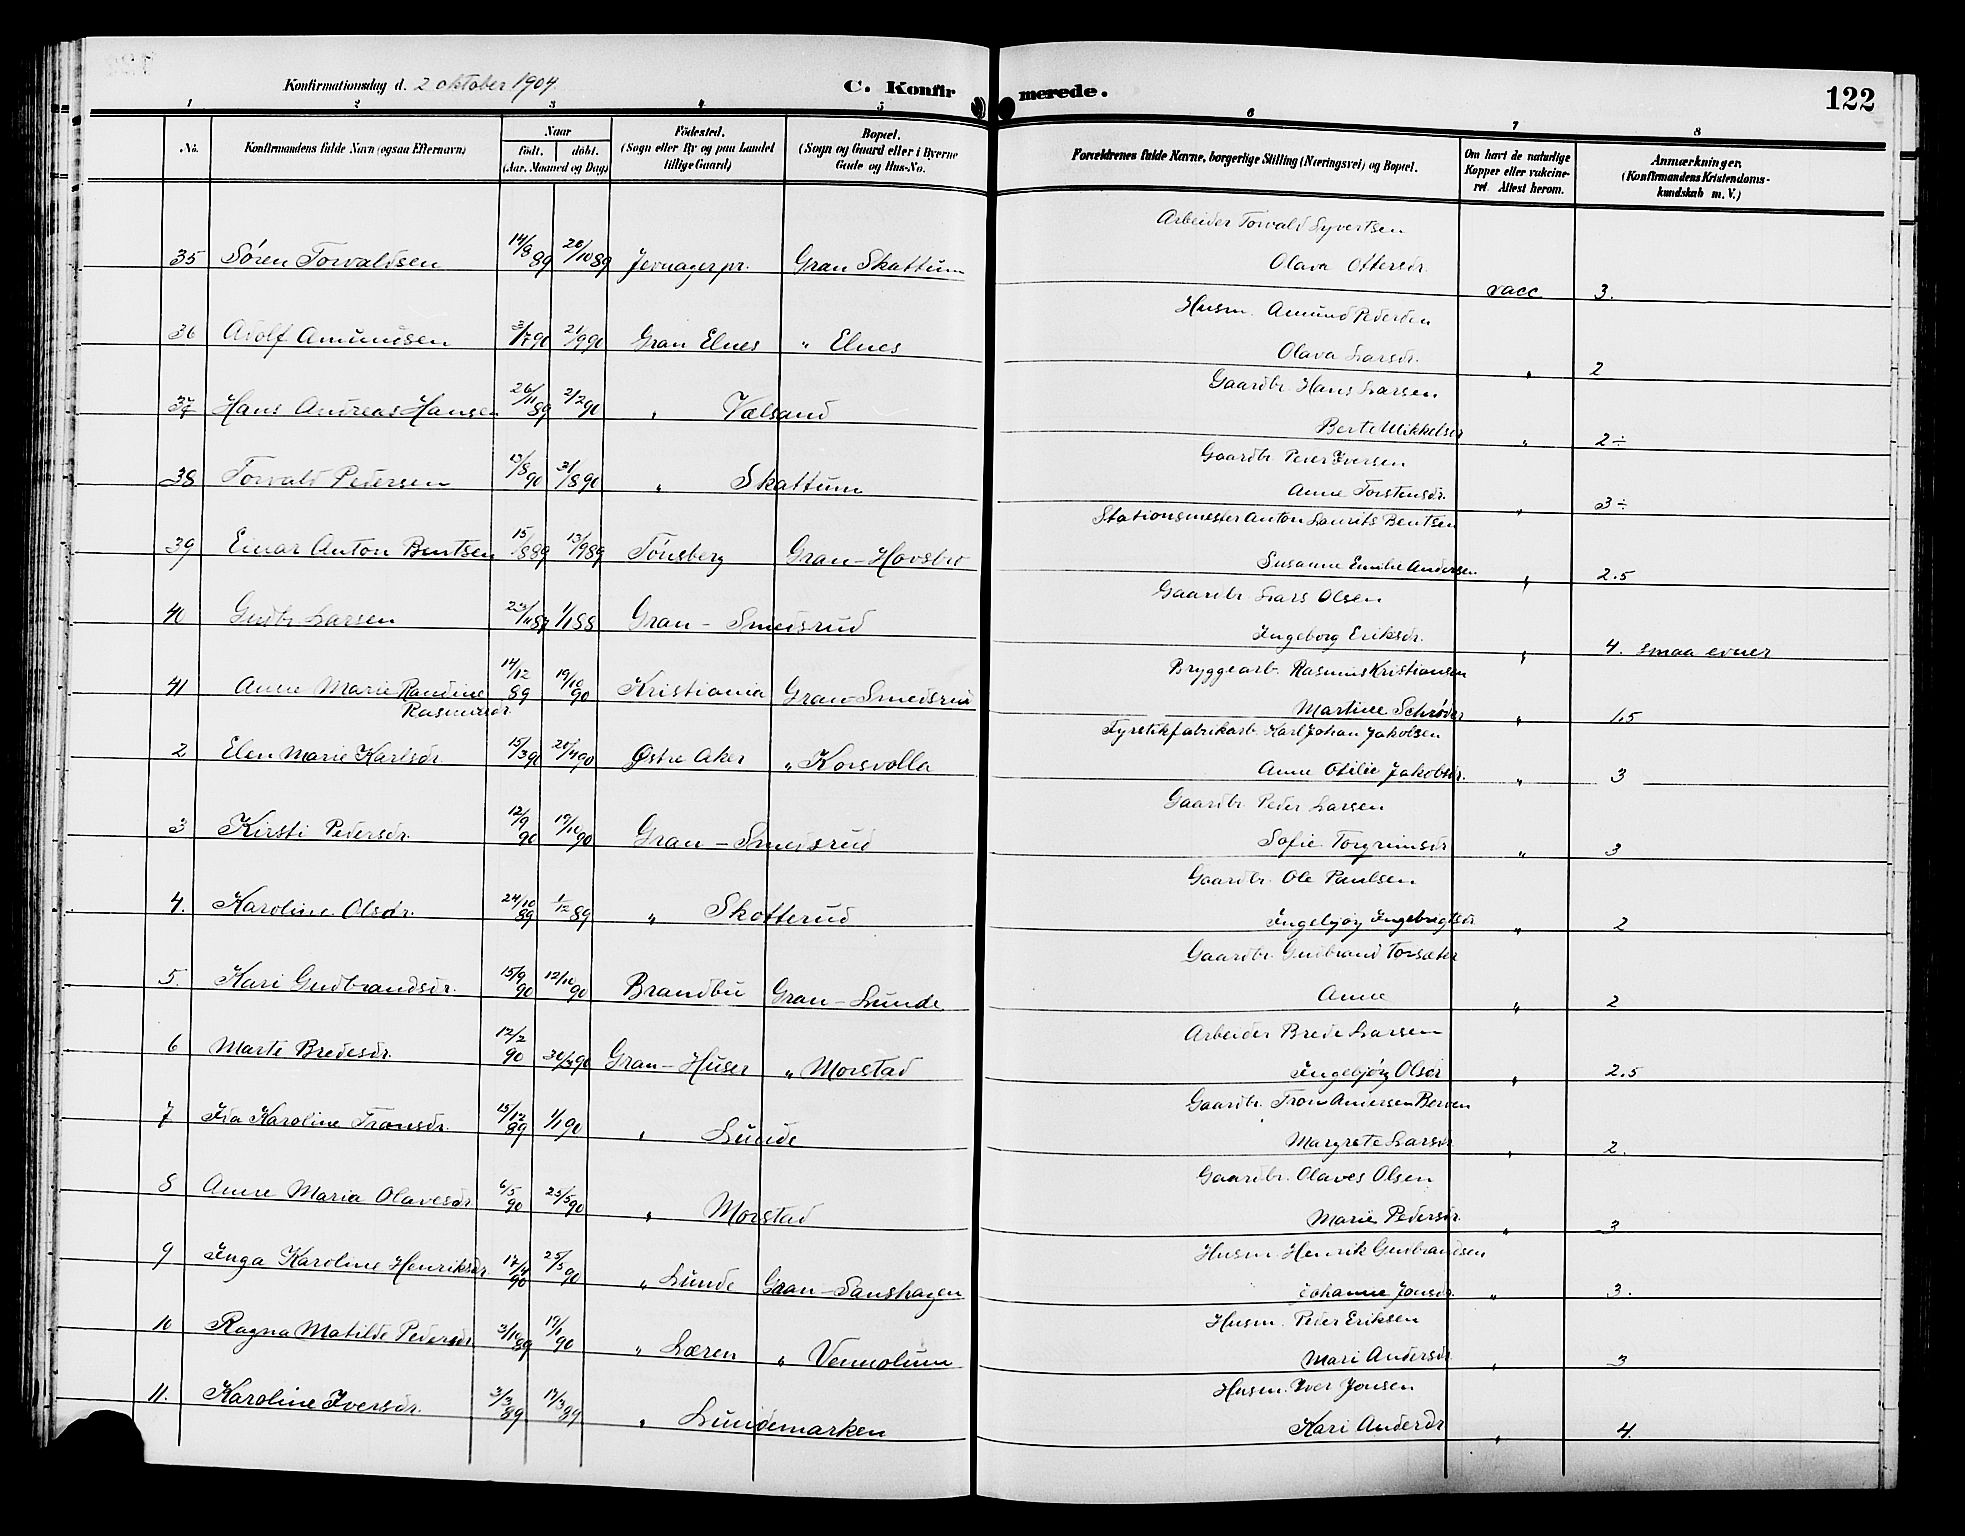 Konfirmationsdag d. 2 oktober 1904.
C. Konfirmerede.
122
1 2 3 4 5 6 7 8
No.
Konfirmandens fulde Navn (ogsaa Efternavn)
Naar
födt. döbt.
(Aar, Maaned og Dag)
Födested.
(Sogn eller By og paa Landet
tillige Gaard)
Bopæl.
(Sogn og Gaard eller i Byerne
Gade og Hus-No.
Forældrenes fulde Navne, borgerlige Stilling (Næringsvei) og Bopæl.
Om havt de naturlige
Kopper eller vakcine-
ret. Attest herom.
Anmærkninger.
(Konfirmandens Kristendoms-
kundskab m. V.)
Arbeider Torvald Syvertsen
35 Sören Torvaldsen 14/8 89 20/10 89 Jevnagerpr. Gran Skattum Olava Ottersdr. vacc 3.
Husm. Amund Pedersen
36 Adolf Amundsen 3/7 90 21/9 90 Gran Elnes " Elnes Olava Larsdr. " 2
Gaardbr. Hans Larsen
37 Hans Andreas Hansen 26/11 89 2/2 90 " Vælsand Berte Mikkelsdr " 2 ÷
Gaardbr. Peder Iversen
38 Torvald Pedersen 13/8 90 31/8 90 " Skattum Anne Torstensdr. " 3 ÷
Stationsmester Anton Laurits Bentsen
39 Einar Anton Bentsen 15/8 89 13/9 89 Tönsberg Gran - Hovsbro Susanne Emilie Andersen " 2.5
Gaardbr. Lars Olsen
40 Gudbr. Larsen 23/11 87 1/1 88 Gran - Smedsrud Ingeborg Eriksdr. " 4. smaa evner
Bryggearb. Rasmus Kristiansen
41 Anne Marie Randine 14/12 89 19/10 90 Kristiania Gran - Smedsrud
Rasmusdr. Martine Schrøder " 1.5
Fyrstikfabrikarb. Karl Johan Jakobsen
2 Elen Marie Karlsdr. 15/3 90 20/4 90 Østre Aker " Korsvolla Anne Otilie Jakobsdr. " 3
Gaardbr. Peder Larsen
3 Kirsti Pedersdr. 12/9 90 19/10 90 Gran - Smedsrud Sofie Torgrimsdr " 3
Gaardbr. Ole Paulsen
4. Karoline Olsdr. 24/10 89 1/12 89 " Skotterud Ingebjør Ingebrigtsdr " 2
Gaardbr. Gudbrand Torsæter
5. Kari Gudbrandsdr. 15/9 90 12/10 90 Brandbu Gran - Lunde Anne " 2
Arbeider Brede Larsen
6 Marte Bredesdr. 12/2 90 30/3 90 Gran - Huser " Morstad Ingebjør Olsdr " 2.5
Gaardbr. Tron Andersen Berven
7 Ida Karoline Tronsdr. 15/12 89 1/1 90 " Lunde Margrete Larsdr " 2.
Gaardbr. Olaves Olsen
8 Anne Maria Olavesdr. 6/5 90 25/5 90 " Morstad Marie Pedersdr. " 3
Husm. Henrik Gudbrandsen
9 Inga Karoline Henriksdr 17/4 90 25/5 90 " Lunde Gran - Sanshagen Johanne Jonsdr. " 3.
Husm. Peder Eriksen
10 Ragna Matilde Pedersdr 3/10 89 19/1 90 " Læren " Vennolum Mari Andersdr " 3
Husm. Iver Jonsen
11. Karoline Iversdr. 3/3 89 17/3 89 " Lundemarken Kari Andersdr " 4.